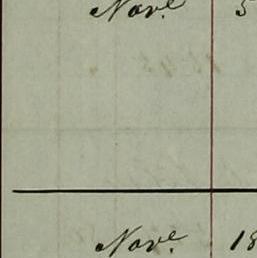 Nov.e 5
Nov.e 18